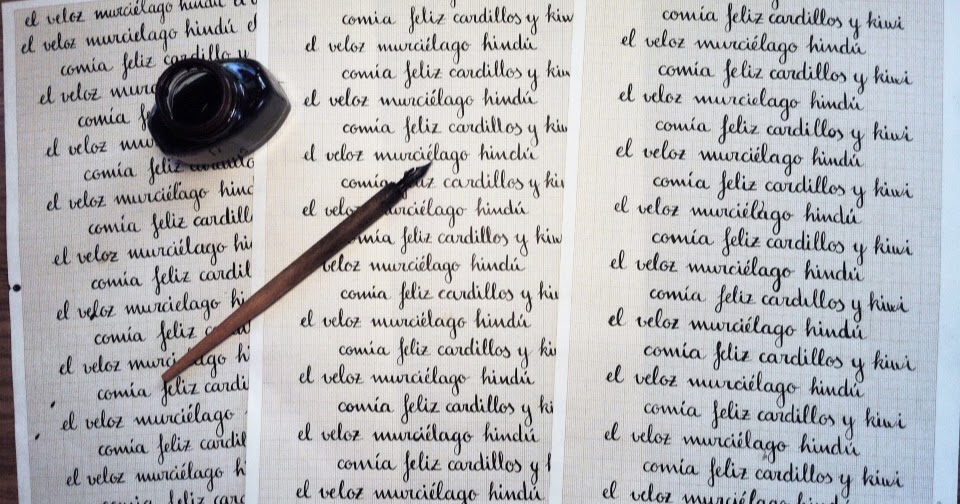 el veloz murciélago hindú el v
el veloz murciélago hindú
comía feliz cardillo y
el veloz murc
comía f
el veloz mu
comía feliz
el veloz murciélago hind
comía feliz cardill
el veloz murciélago hi
comía feliz cardil
el veloz murcielago hi
comía feliz
el veloz murciélago h
comía feliz cardi
el veloz murciélago
comía feliz cardil
el veloz murciélago h
feliz car
comía feliz cardillos y kiw
el veloz murciélago hindú
comía feliz cardillos y kiw
el veloz murciélago hindú
comía feliz cardillos y kiw
el veloz murciélago hindú
comía feliz cardillos y ki
el veloz murciélago hindú
comía feliz cardillos y kiw
veloz murciélago hindú
comía feliz cardillos y ki
el veloz murciélago hindú
comía feliz cardillos y ki
el veloz murciélago hindú
comía feliz cardillos y ki
el veloz murciélago hindú
comía feliz cardillos y
el veloz murciélago hindú
comía feliz cardillos y kiwi
el veloz murciélago hindú
comía feliz cardillos y kiwi
el veloz murcielago hindú
comía feliz cardillos y kiwi
el veloz murciélago hindú
comía feliz cardillos y kiwi
el veloz murciélago hindú
comía feliz cardillos y kiwi
el veloz murciélago hindú
comía feliz cardillos y kiwi
el veloz murciélago hindú
comía feliz cardillos y kiwi
el veloz murciélago hindú
comía feliz cardillos y kiwi
el veloz murciélago hindú
comía feliz cardillos y kiwi
el veloz murciélago hindú